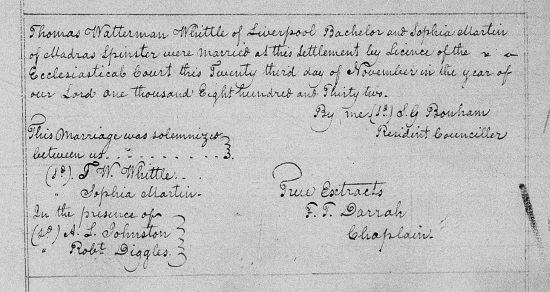 Thomas Watterman Whittle of Liverpool Bachelor and Sophia Martin
of Madras Spinster were married at this Settlement by Licence of the
Ecclesiastical Court this Twenty third day of November in the year of
our Lord one thousand Eight hundred and Thirty two.
By me (Sd) S. G Bonham
Resident Counciller
This Marriage was solemnized
between us . . . . . . . . . }
(Sd) T. W. Whittle . .
" Sophia Martin -
In the presence of
(Sd) A. L. Johnston }
" Robt Diggles. }
True Extracts
F. T. Darrah
Chaplain.